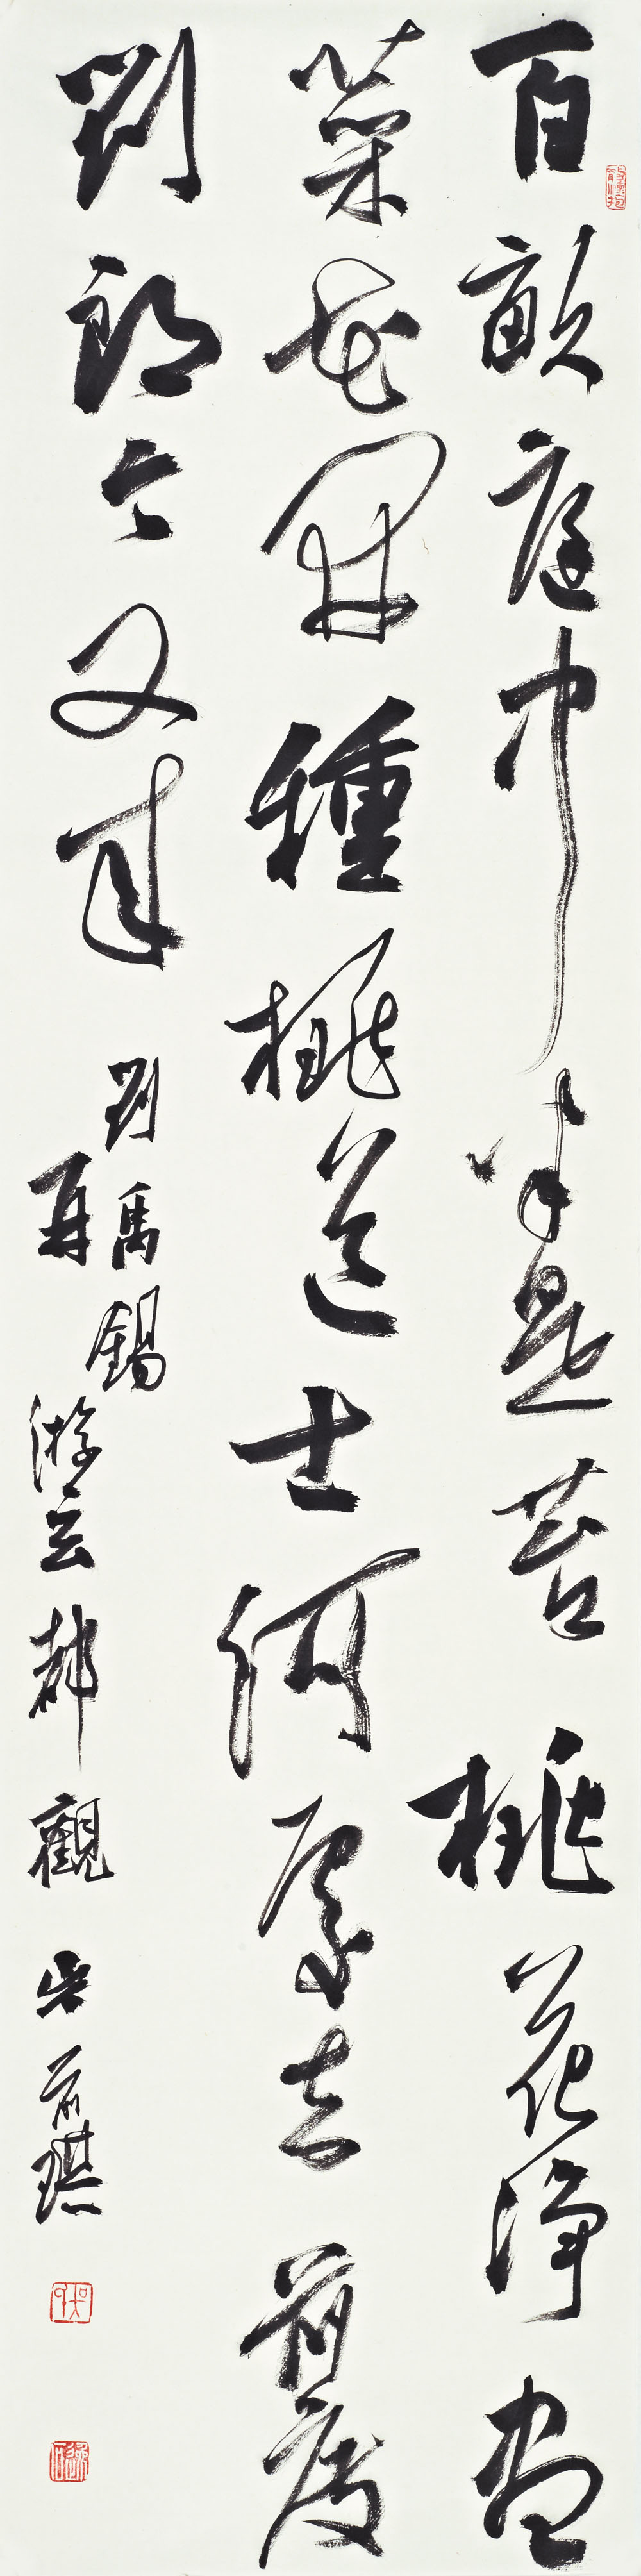 百畝庭中半是苔桃花淨盡
菜花開種桃道士何處去前度
劉郎今又來
劉禹錫
再游玄都觀
吳前琪